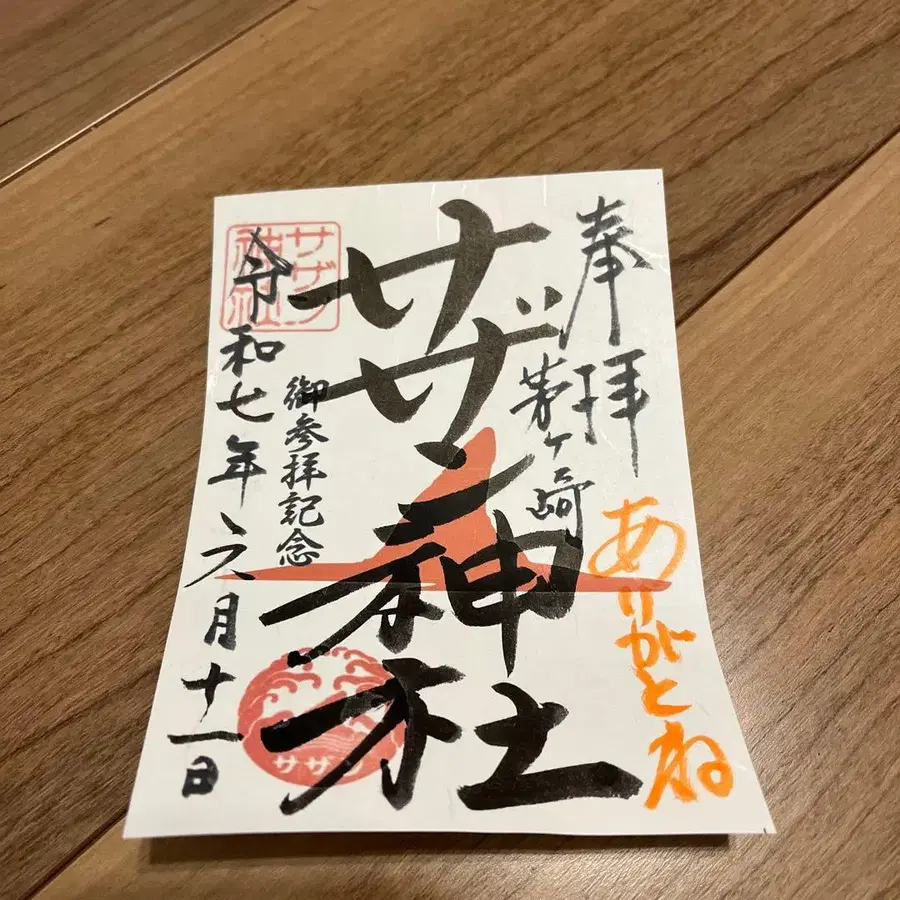 奉拝
茅ヶ崎
ありがとね
サザン神社
御参拝記念
令和七年六月十一日
サザン
神社
サザン